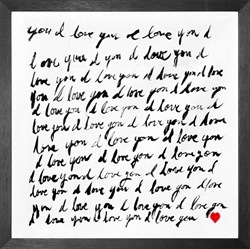 you I love you I love you I
love you I you I love you I
love you I love you I love you I
you I love you I love you I love
you I love you I love you I
love you I love you I love you
I love you I love you I love
you I love you I love you I
love you I love you I love you
I love you I love you I love you
I love you I love you I love
you I love you I love you I love
you I love you I love you I
love you I love you I love you